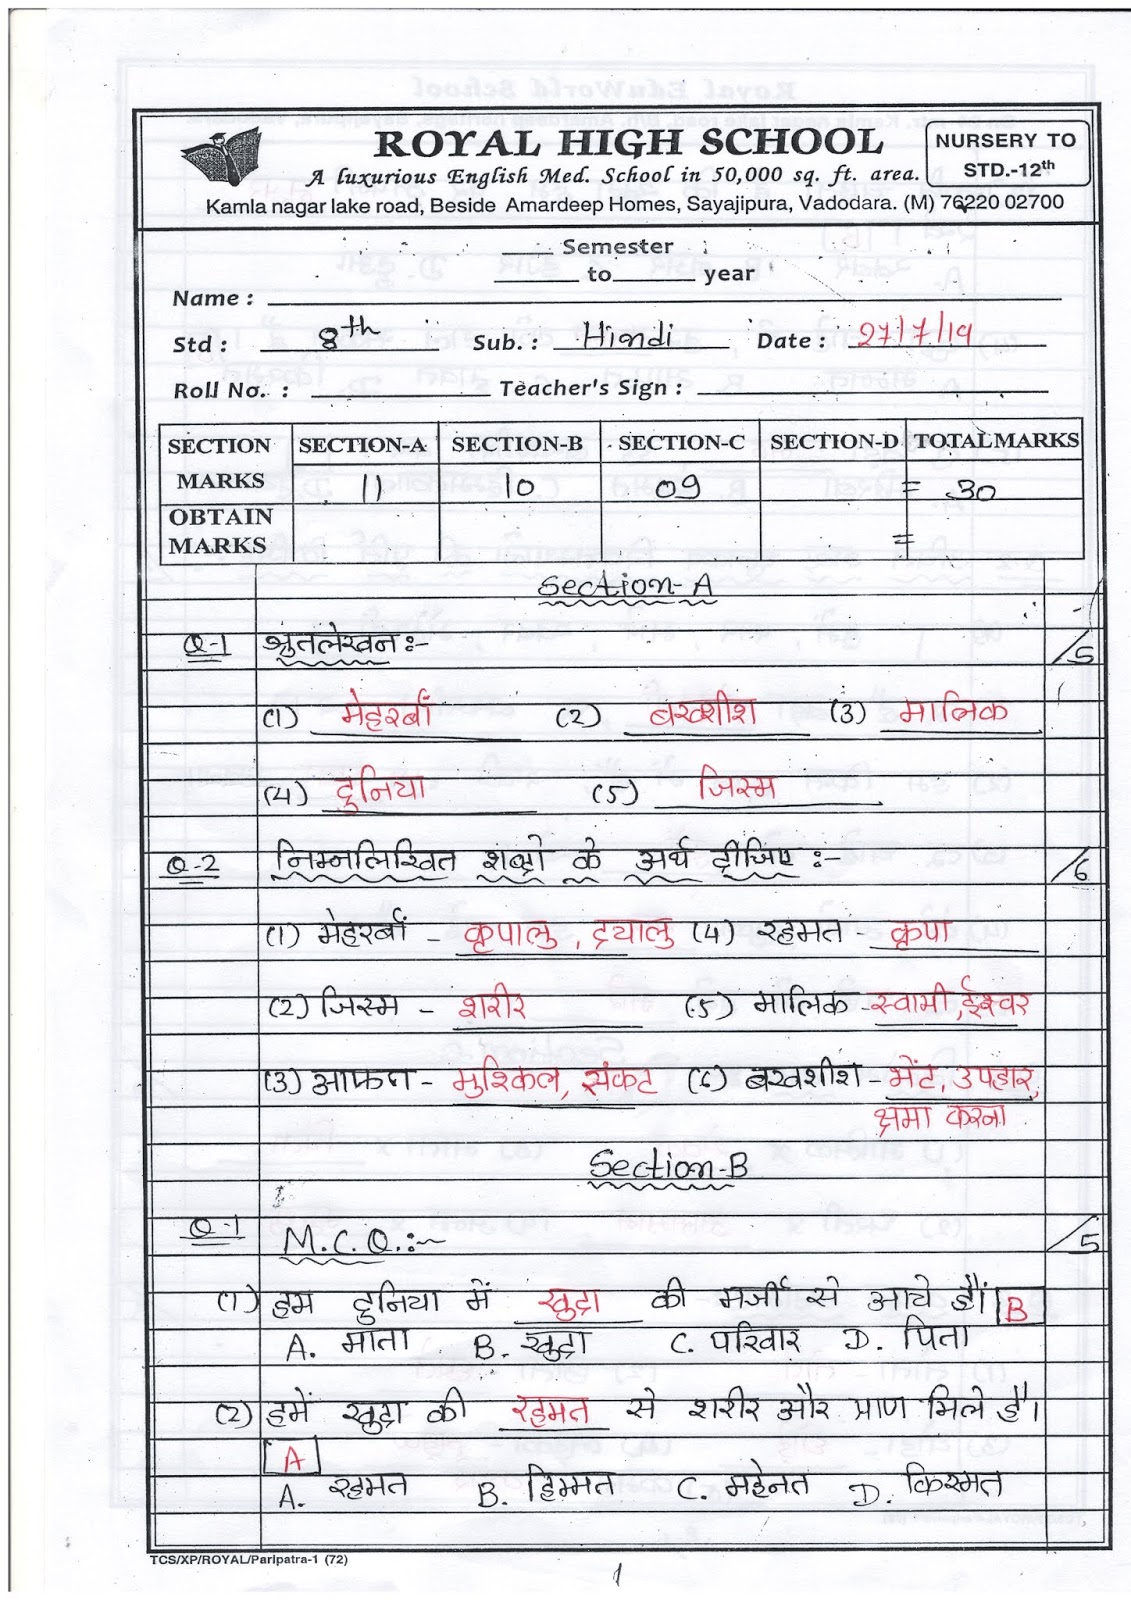 ROYAL HIGH SCHOOL
NURSERY TO STD.-12th
A luxurious English Med. School in 50,000 sq. ft. area.
Kamla nagar lake road, Beside Amardeep Homes, Sayajipura, Vadodara. (M) 76220 02700
____ Semester
____ to ____ year
Name :
Std : 8th Sub. : Hindi Date : 27/7/19
Roll No. : Teacher's Sign :
SECTION MARKS SECTION-A SECTION-B SECTION-C SECTION-D TOTAL MARKS
11 10 09 = 30
OBTAIN MARKS =
Section-A
Q-1 श्रुतलेखन :- /5
(1) मेहरबाँ (2) बख्शीश (3) मालिक
(4) दुनिया (5) जिस्म
Q-2 निम्नलिखित शब्दो के अर्थ दीजिए :- /6
(1) मेहरबाँ - कृपालु, दयालु (4) रहमत - कृपा
(2) जिस्म - शरीर (5) मालिक - स्वामी, ईश्वर
(3) आफत - मुश्किल, संकट (6) बख्शीश - भेंट, उपहार,
क्षमा करना
Section-B
Q-1 M.C.Q. :- /5
(1) हम दुनिया में खुदा की मर्जी से आये हैं। B
A. माता B. खुदा C. परिवार D. पिता
(2) हमें खुदा की रहमत से शरीर और प्राण मिले है।
A
A. रहमत B. हिम्मत C. महेनत D. किस्मत
TCS/XP/ROYAL/Paripatra-1 (72)
1